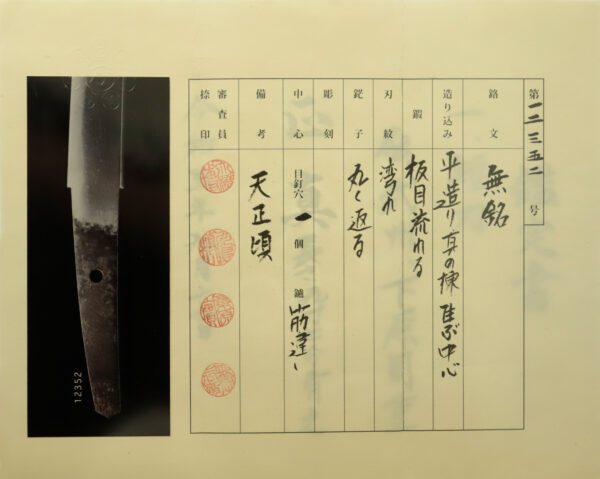 第一二三五二号
銘文 無銘
造り込み 平造り真の棟 生ぶ中心
鍜 板目流れる
刃紋 湾れ
鋩子 丸く返る
彫刻
中心 目釘穴 一個 鑢 筋違い
備考 天正頃
審査員捺印
12352